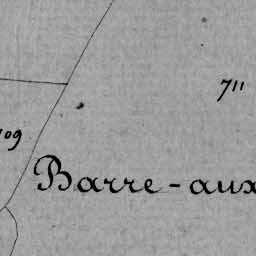 711
109
Barre-aux